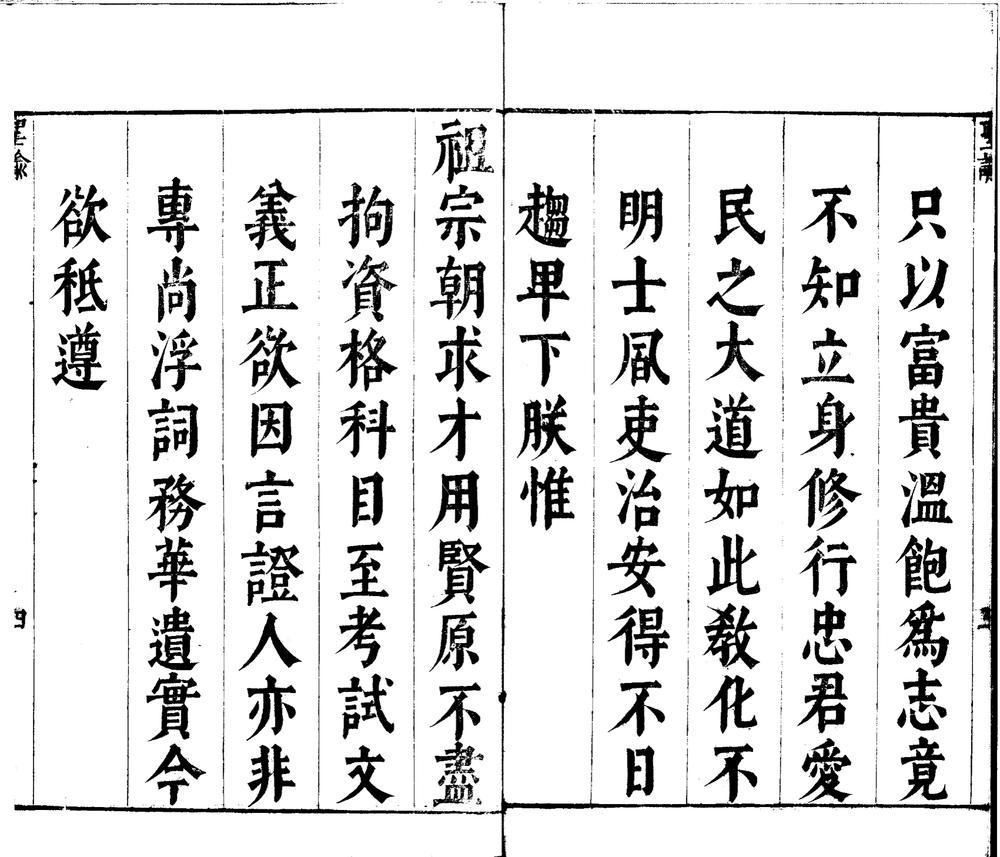 聖諭
只以富貴溫飽爲志竟
不知立身修行忠君愛
民之大道如此教化不
明士風吏治安得不日
趨卑下朕惟
祖宗朝求才用賢原不盡
拘資格科目至考試文
義正欲因言證人亦非
專尚浮詞務華遺實今
欲秪遵
聖諭
四